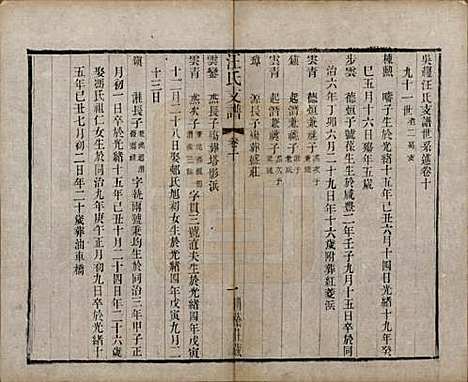 吳趨汪氏支譜世系述卷十
九十一世 老二房支
棟勲 嗜子生於光緒十五年己丑六月十四日光緒十九年癸
巳五月十六日殤年五歲
步雲 德烜子號葆生生於咸豐二年壬子九月九日卒於同
治六年丁卯六月二十九日年十六歲附葬紅菱浜
雲青 德烜兼祧子
鎮 起渭兼祧子
雲青 起渭兼祧子
璋 源長子殤葬盛莊
汪氏支譜 卷十
一
雲鑾 燕長子殤葬塔影浜
雲青 燕次子 字貫三號直夫生於光緒四年戊寅
十二月二十八日娶鄒氏旭初女生於光緒四年戊寅九月二
十三日
嶺 湘長子 字祧兩號秉均生於同治三年甲子正
月初一日卒於光緒十五年己丑十月二十四日年二十六歲
娶馮氏祖仁女生於同治九年庚午正月初九日卒於光緒十
五年己丑七月初二日年二十歲葬油車橋